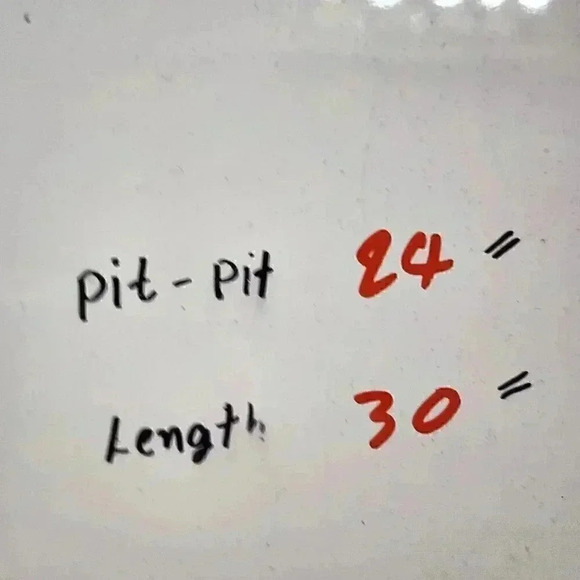 pit - pit 24"
Length 30"